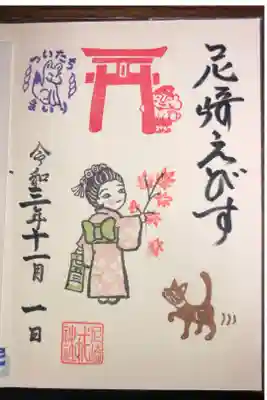 尼崎えびす
ついたち
まいり
令和三年十一月一日